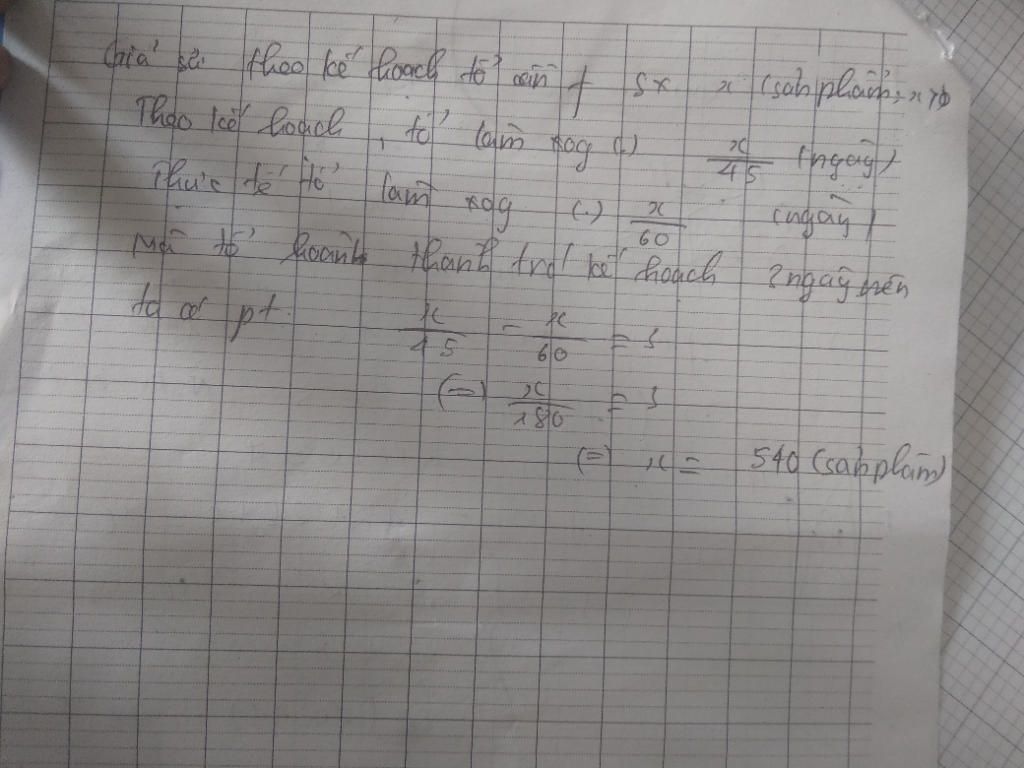 Giả sử theo kế hoạch tổ cần f sx x (sản phẩm, x>0
Theo kế hoạch, tổ làm xog (.) x/45 (ngày)
Thực tế tổ làm xog (.) x/60 (ngày)
Mà tổ hoành thành trc kế hoạch 3 ngày nên
ta có pt x/45 - x/60 = 3
(=) x/180 = 3
(=) x = 540 (sản phẩm)